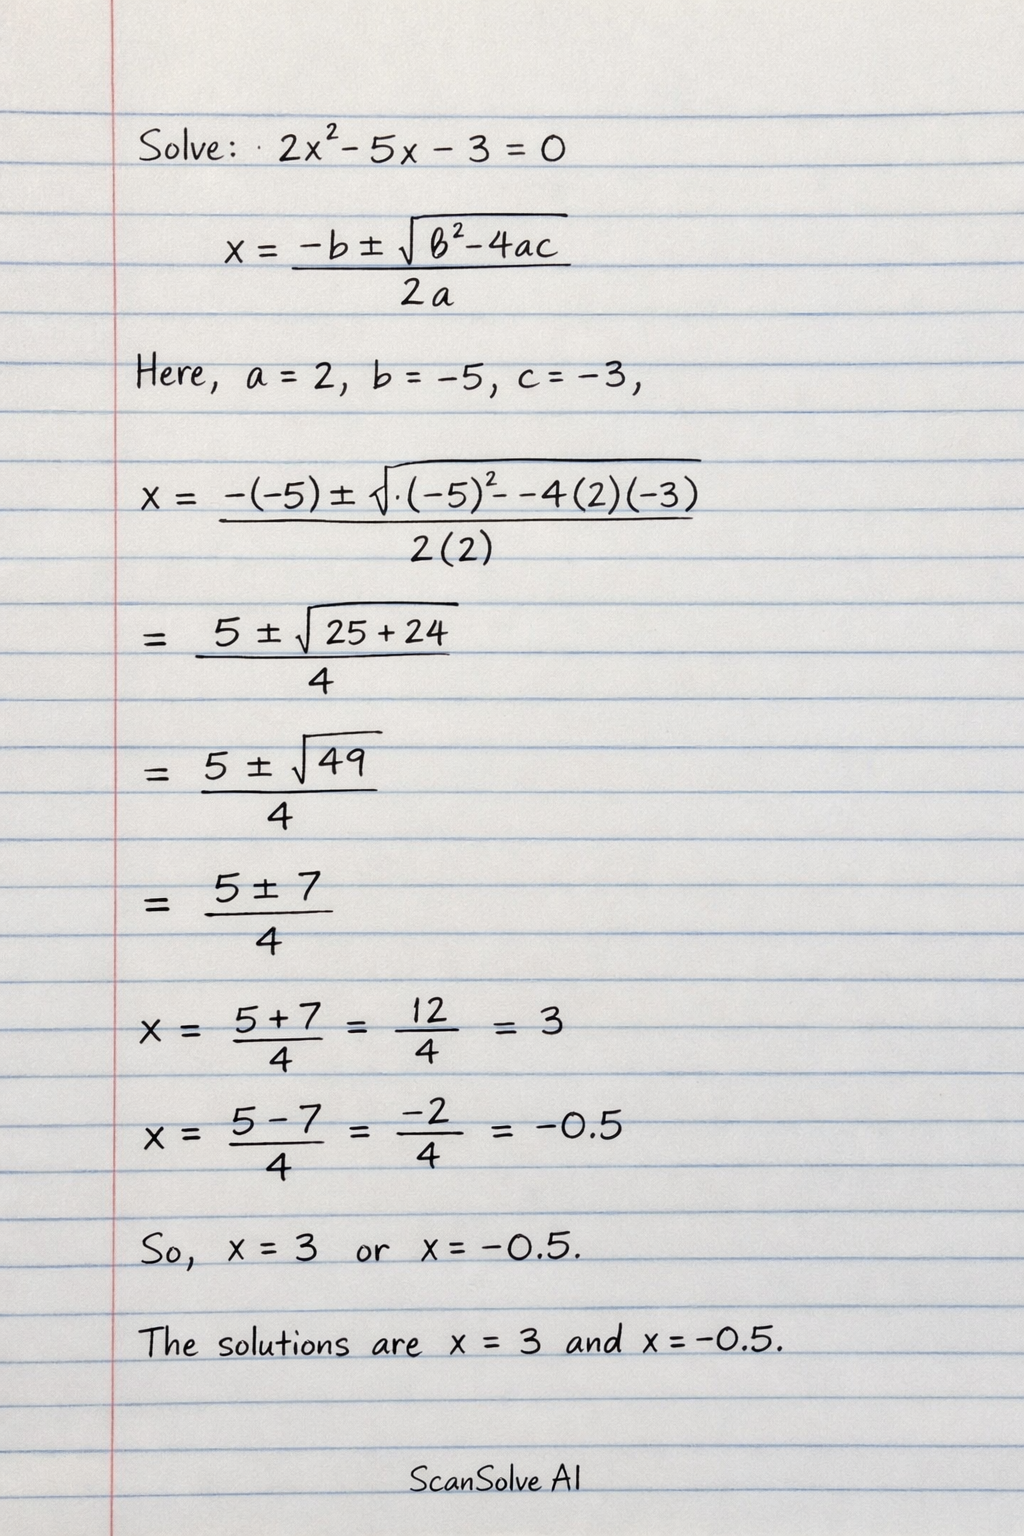 Solve: · 2x² - 5x - 3 = 0
x = -b ± √b² - 4ac
2a
Here, a = 2, b = -5, c = -3,
x = -(-5) ± √·(-5)² - -4(2)(-3)
2(2)
= 5 ± √25 + 24
4
= 5 ± √49
4
= 5 ± 7
4
x = 5 + 7 / 4 = 12 / 4 = 3
x = 5 - 7 / 4 = -2 / 4 = -0.5
So, x = 3 or x = -0.5.
The solutions are x = 3 and x = -0.5.
ScanSolve AI